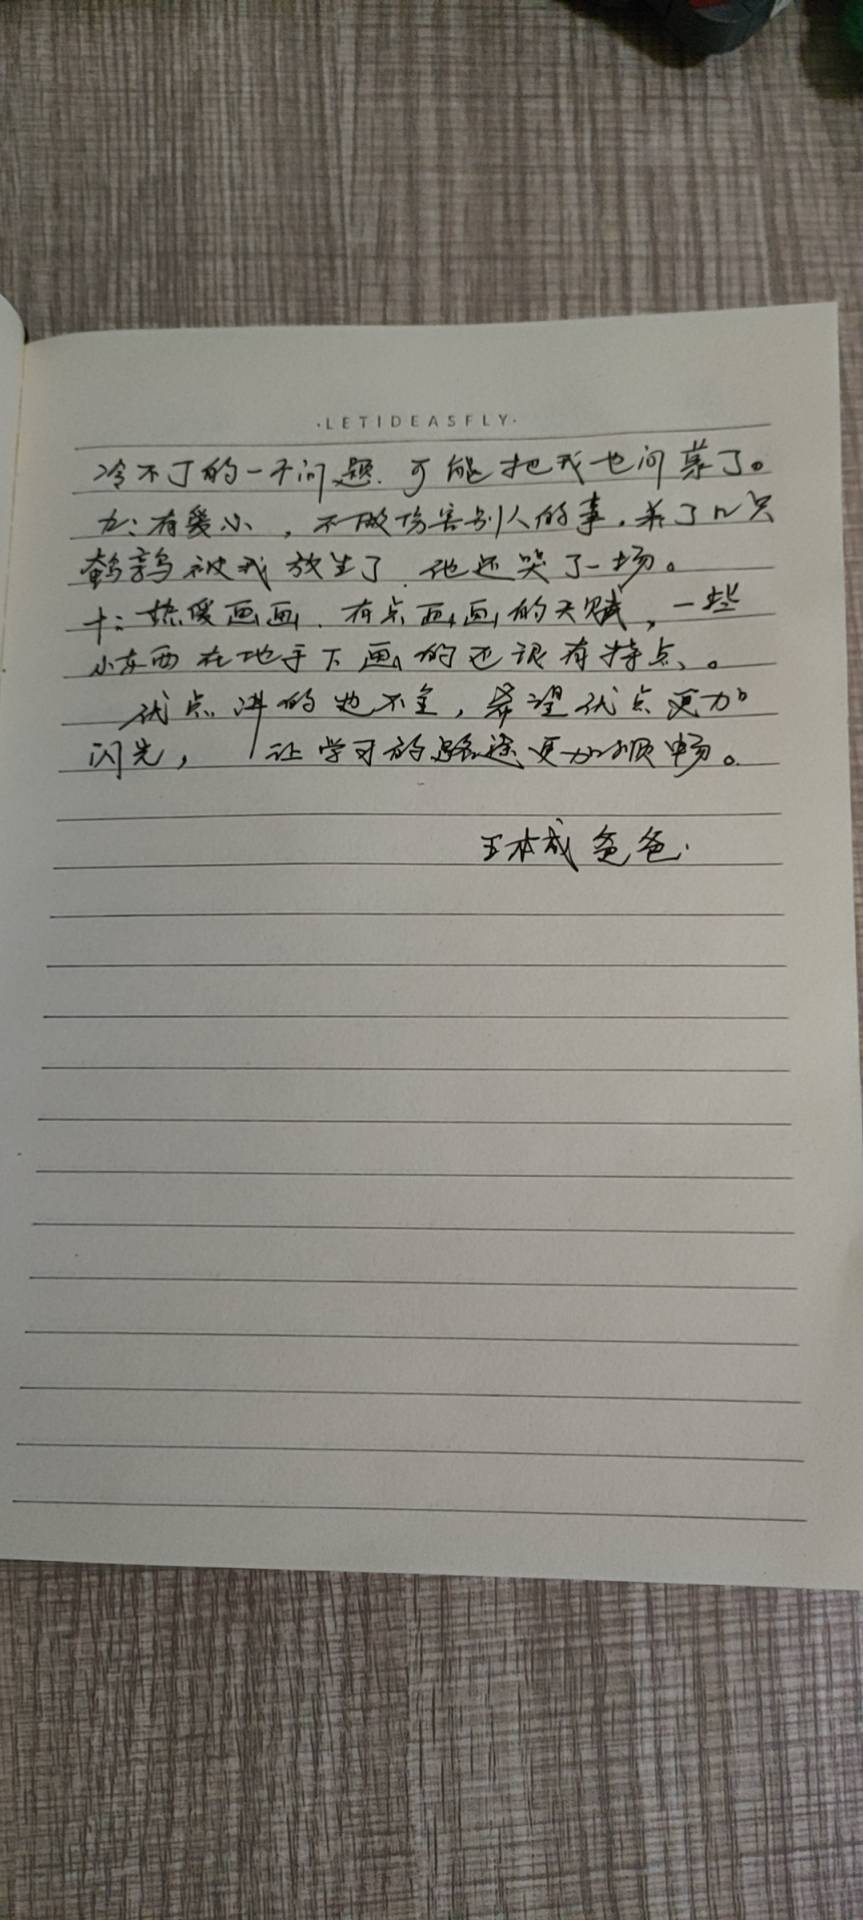 ·LETIDEASFLY·
冷不丁的一个问题.可能把我也问蒙了。
九:有爱心,不做伤害别人的事.养了几只
鹌鹑被我放生了.他还哭了一场。
十:热爱画画.有点画画的天赋,一些
小东西在他手下画的还很有特点、。
优点讲的也不全,希望优点更加
闪光,让学习的路途更加顺畅。
王本成爸爸.